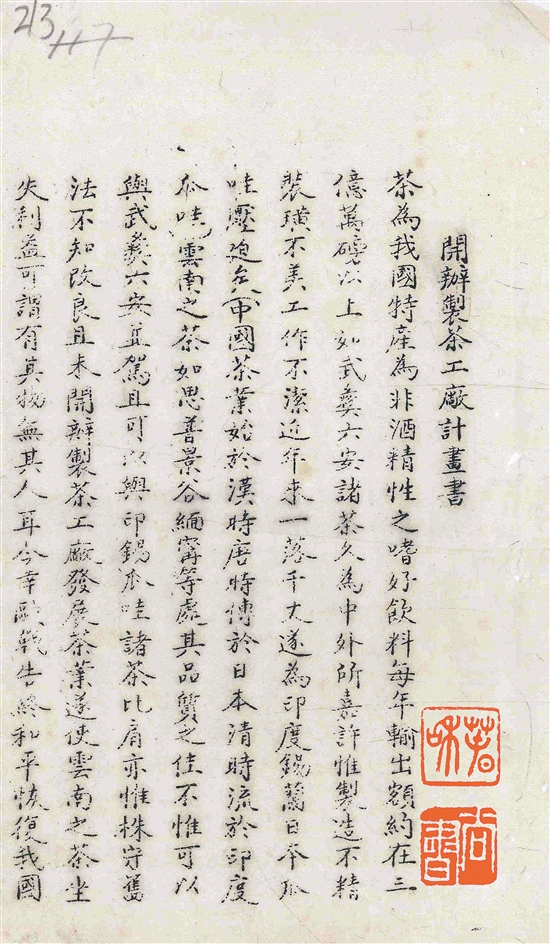 213
117
開辦製茶工廠計畫書
茶為我國特產為非酒精性之嗜好飲料每年輸出額約在三
億萬磅以上如武彝六安諸茶久為中外所嘉許惟製造不精
裝璜不美工作不潔近年來一落千丈遂為印度錫蘭日本瓜
哇壓迫矣中國茶業始於漢時唐時傳於日本清時流於印度
瓜哇雲南之茶如思普景谷緬甯等處其品質之佳不惟可以
與武彝六安並駕且可以與印錫瓜哇諸茶比肩亦惟株守舊
法不知改良且未開辦製茶工廠發展茶業遂使雲南之茶坐
失利益可謂有其物無其人耳今幸歐戰告終和平恢復我國